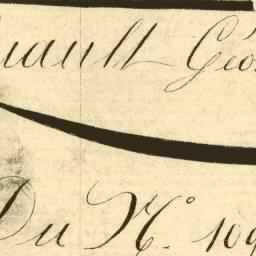 uault Géo
Du N.° 109